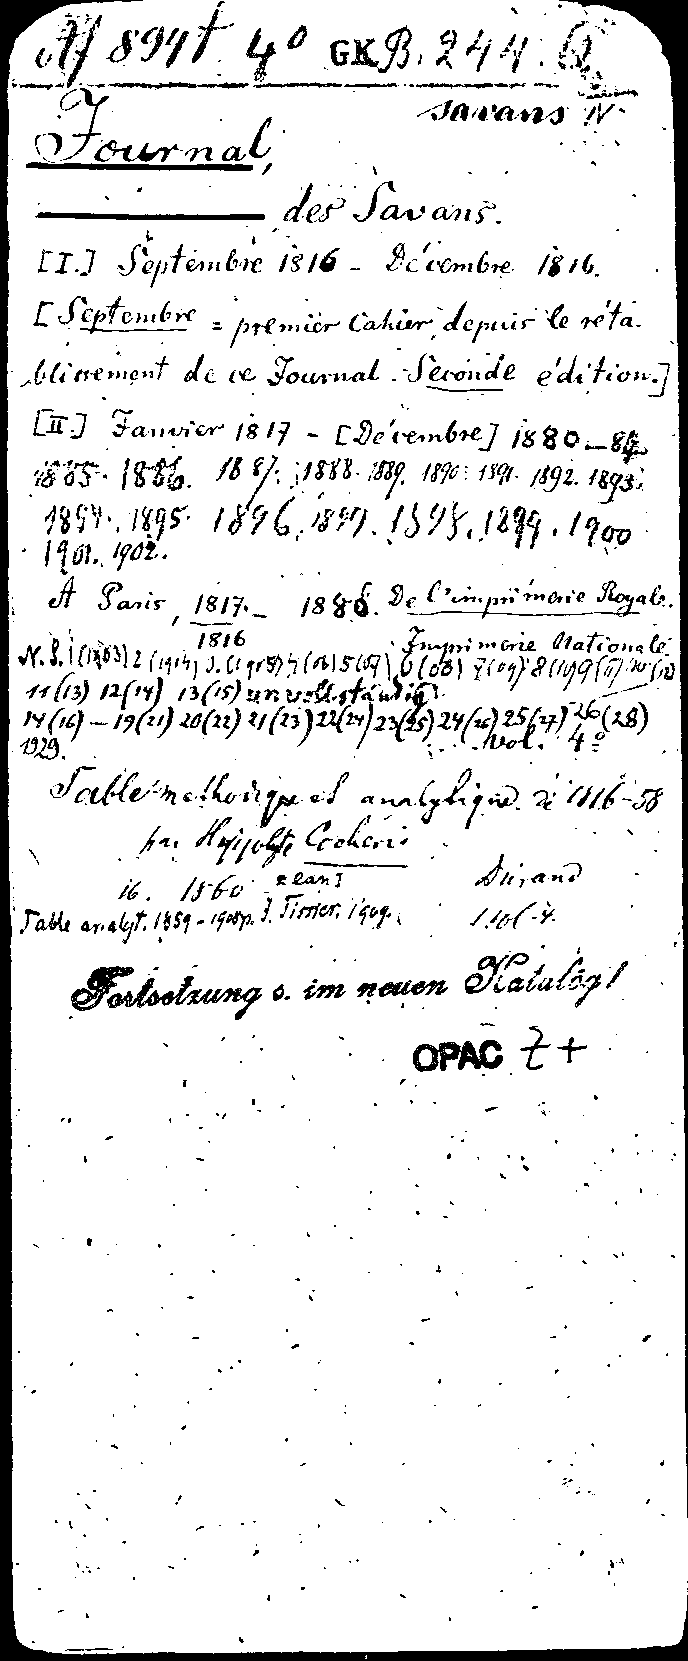 Af 894t 4° GK B. 244.
Savans N.
Journal,
des Savans.
[I.] Septembre 1816 - Décembre 1816.
[Septembre = premier Cahier depuis le réta-
blissement de ce Journal. Seconde édition.]
[II.] Janvier 1817 - [Décembre] 1880-84
1885. 1886. 1887. 1888. 1889. 1890. 1891. 1892. 1893.
1894. 1895. 1896. 1897. 1898. 1899. 1900
1901. 1902.
A Paris, 1817. - 1886. De l'imprimerie Royale.
1816 Imprimerie Nationale
N. S. 1 (1903) 2 (1904) 3 (1905) 4 (06) 5 (07) 6 (08) 7 (09) 8 (10) 9 (11) 10 (12)
11 (13) 12 (14) 13 (15) unvollständig
14 (16) - 19 (21) 20 (22) 21 (23) 22 (24) 23 (25) 24 (26) 25 (27) 26 (28)
1929. Vol. 4°
Table méthodique et analytique 1816-58
par Hippolyte Cocheris
ib. 1860 Durand
Table analyt. 1859-1908 p. J. Tissier. 1909.
Fortsetzung s. im neuen Katalog!
OPAC Z+